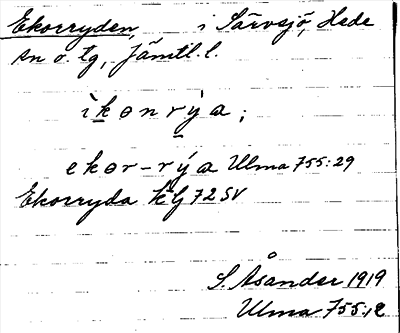 Ekorryden, i Särvsjö, Hede
sn o. tg, Jämtl. l.
ìkonrýa;
ekor-rýa Ulma 755:29
Ekorryda kG 72 SV
S. Åsander 1919
Ulma 755:12